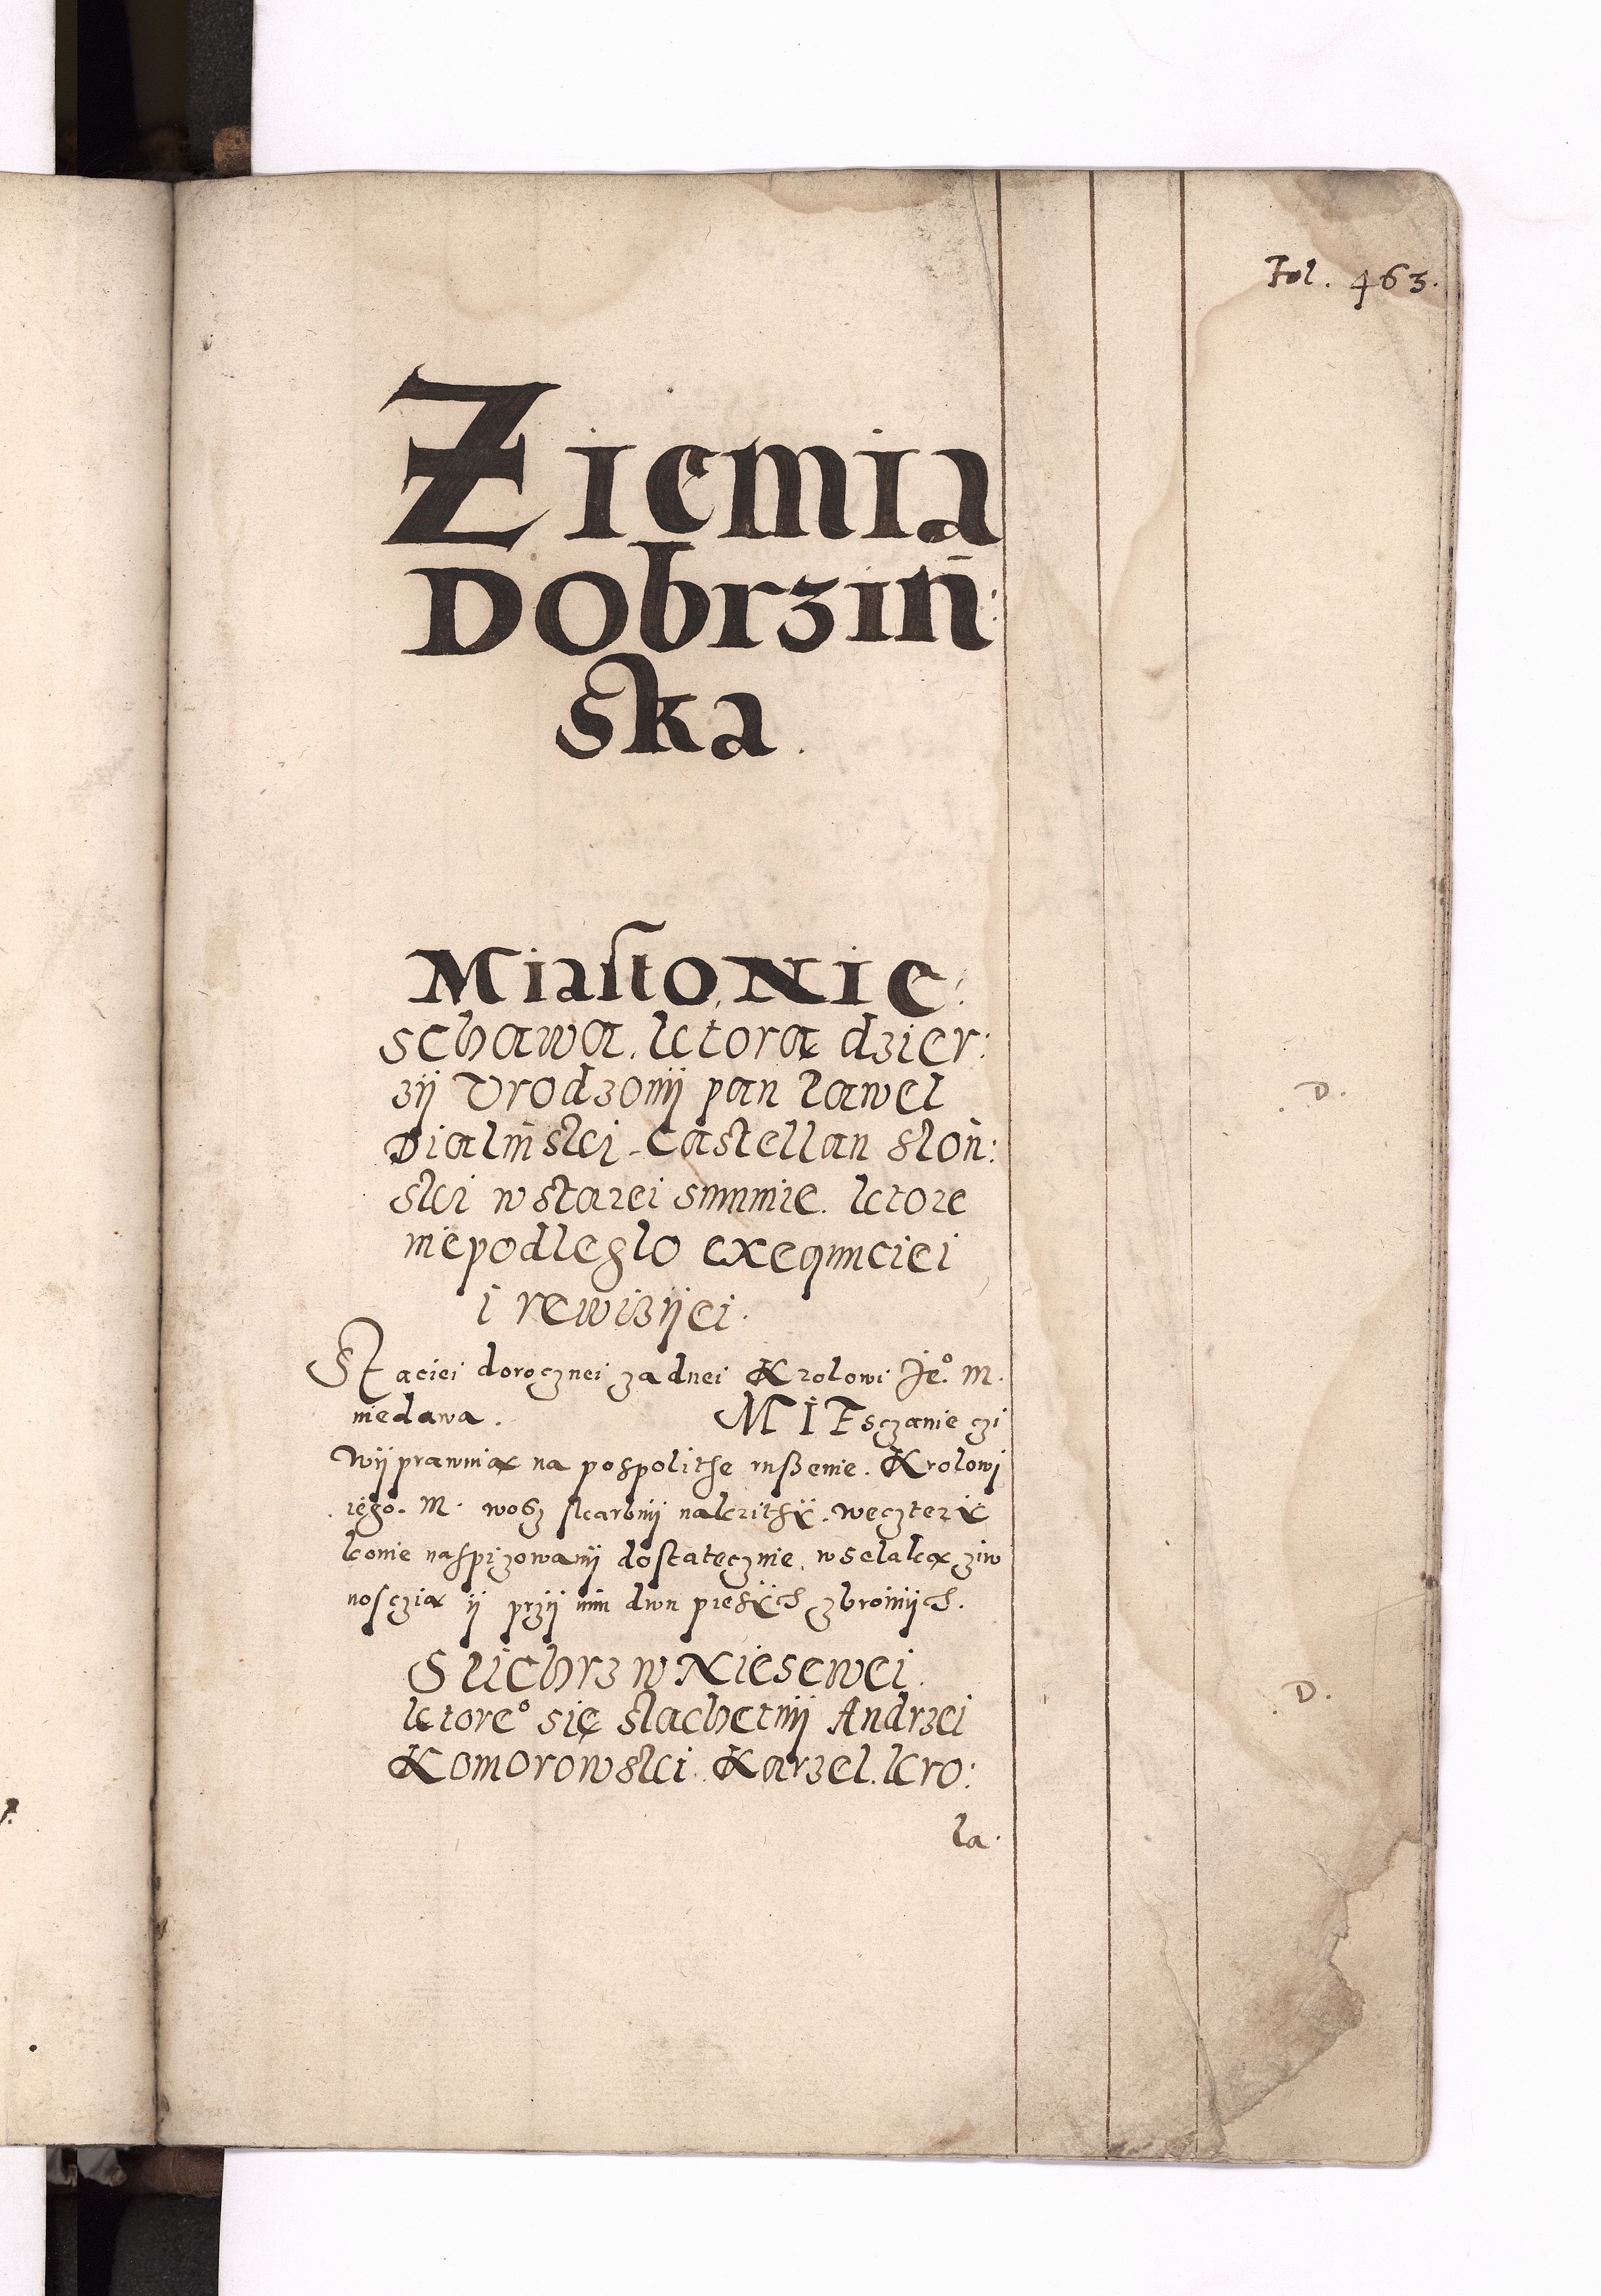 Fol. 463.
Ziemia
Dobrziń:
ska.
Miasto Nie:
schawa. ktorą dzier:
zij Vrodzonij pan Pawel
Dialinski Castellan Słoń:
ski w starei summie. ktore
niepodległo exequuciei
i rewizijei.
Staciei dorocznei zadnei Krolowi Jeº. M.
niedawa. MIEsczanie czi
Wijprawuią na pospolithe rußenie. Krolowi
iego. M. wosz skarbnij nakrithij. we cztery
konie naspizowanij dostatecznie. wselaką ziw
nosczią ij przij nim dwu pieszijch zbroinijch.
Suchrz w Niesewei.
ktoreº się slachetnij Andrzei
Komorowski. Karzel. kro:
la.
D.
D.